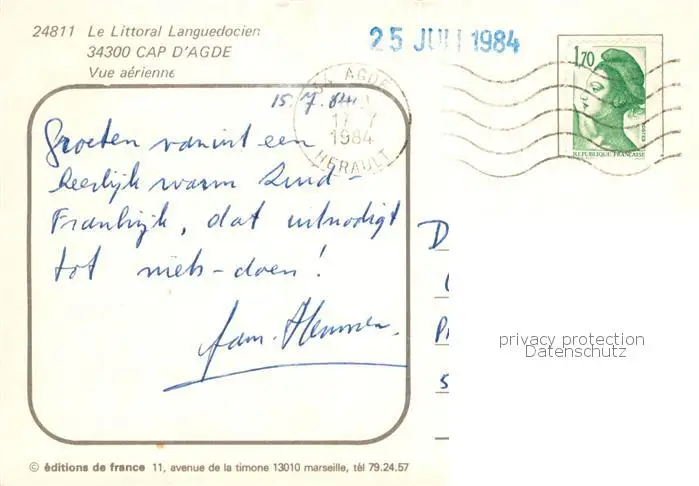 24811 Le Littoral Languedocien
34300 CAP D'AGDE
Vue aérienne
25 JUL 1984
1,70
REPUBLIQUE FRANÇAISE
34 AGDE
17-7
1984
HERAULT
15.7.84
Groeten vanuit een
heerlijk warm Zuid-
Frankrijk, dat uitnodigt
tot niets-doen!
fam.
D
P
5
privacy protection
Datenschutz
© éditions de france 11, avenue de la timone 13010 marseille, tél 79.24.57